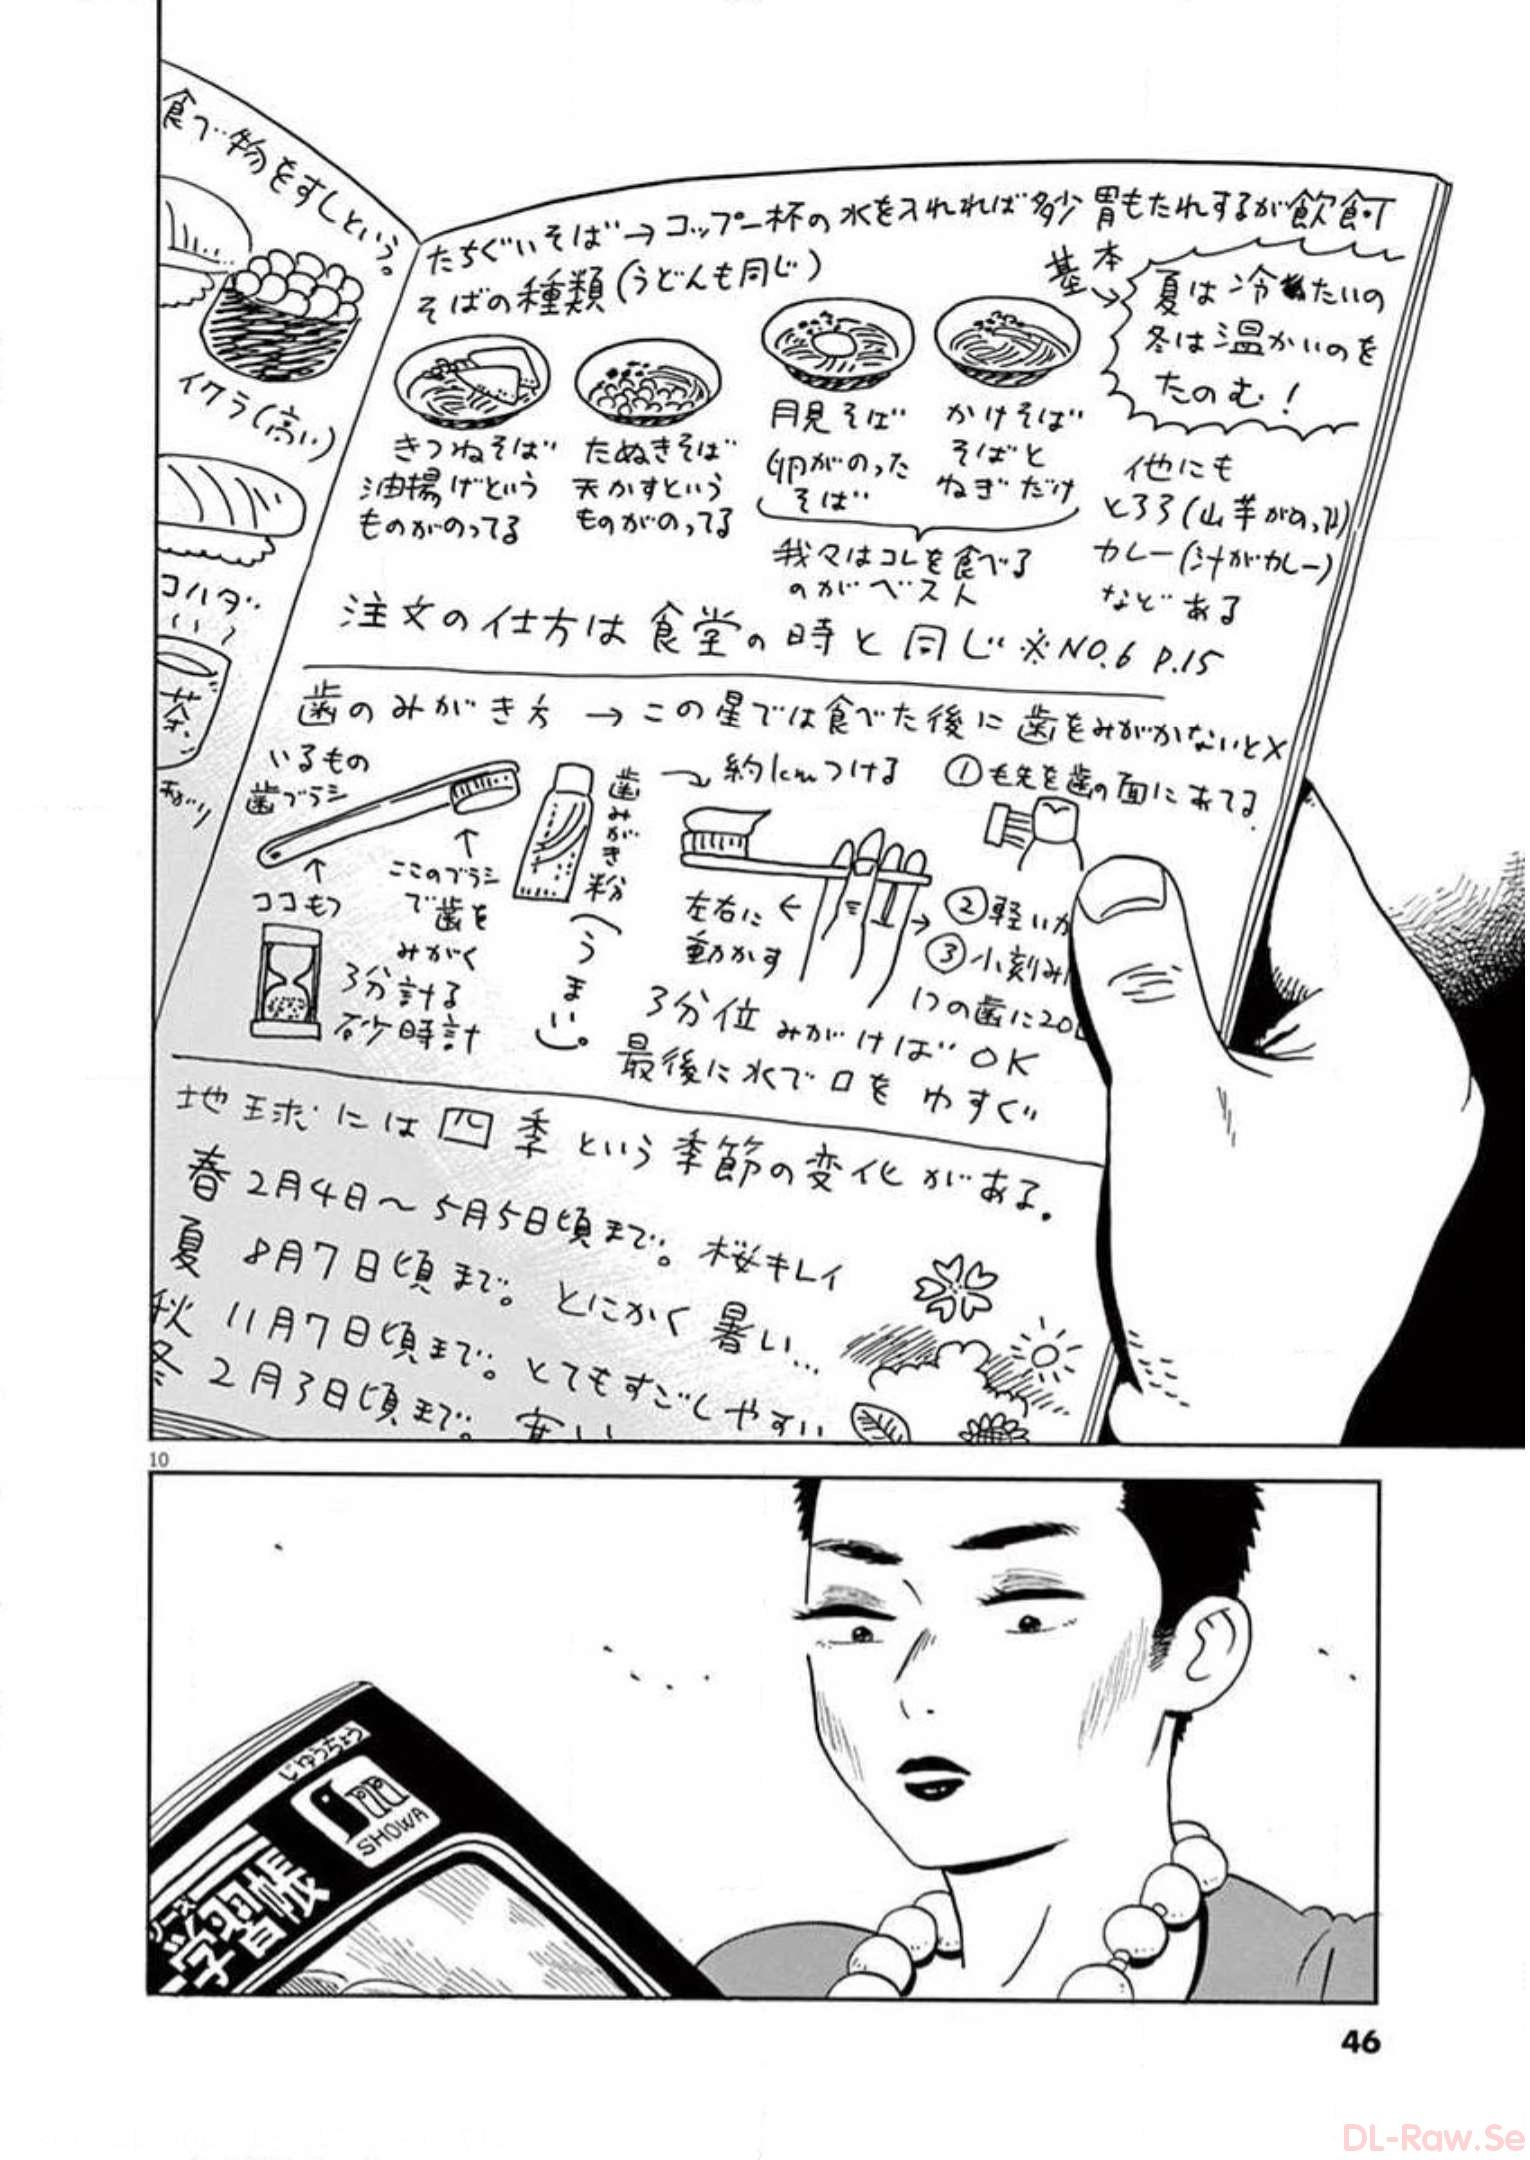 食べ物をすしという。
イクラ(高い)
コハダ
茶
あがり
たちぐいそば→コップ一杯の水を入れれば多少胃もたれするが飲食可
そばの種類(うどんも同じ)
基本
夏は冷たいの
冬は温かいのを
たのむ!
きつねそば
油揚げという
ものがのってる
たぬきそば
天かすという
ものがのってる
月見そば
卵がのった
そば
かけそば
そばと
ねぎだけ
我々はコレを食べる
のがベスト
他にも
とろろ(山芋がのってる)
カレー(汁がカレー)
などある
注文の仕方は食堂の時と同じ※NO.6 P.15
歯のみがき方→この星では食べた後に歯をみがかないと×
いるもの
歯ブラシ
ココもつ
ここのブラシ
で歯を
みがく
歯みがき粉
(うまい)。
3分計る
砂時計
約1cmつける
左右に
動かす
①毛先を歯の面にあてる
②軽いカ
③小刻み
1つの歯に20
3分位みがけばOK
最後に水で口をゆすぐ
地球には四季という季節の変化がある。
春 2月4日~5月5日頃まで。桜キレイ
夏 8月7日頃まで。とにかく暑い…
秋 11月7日頃まで。とてもすごしやすい
冬 2月3日頃まで。寒い
10
じゆうちょう
SHOWA
学習帳
46
DL-Raw.Se